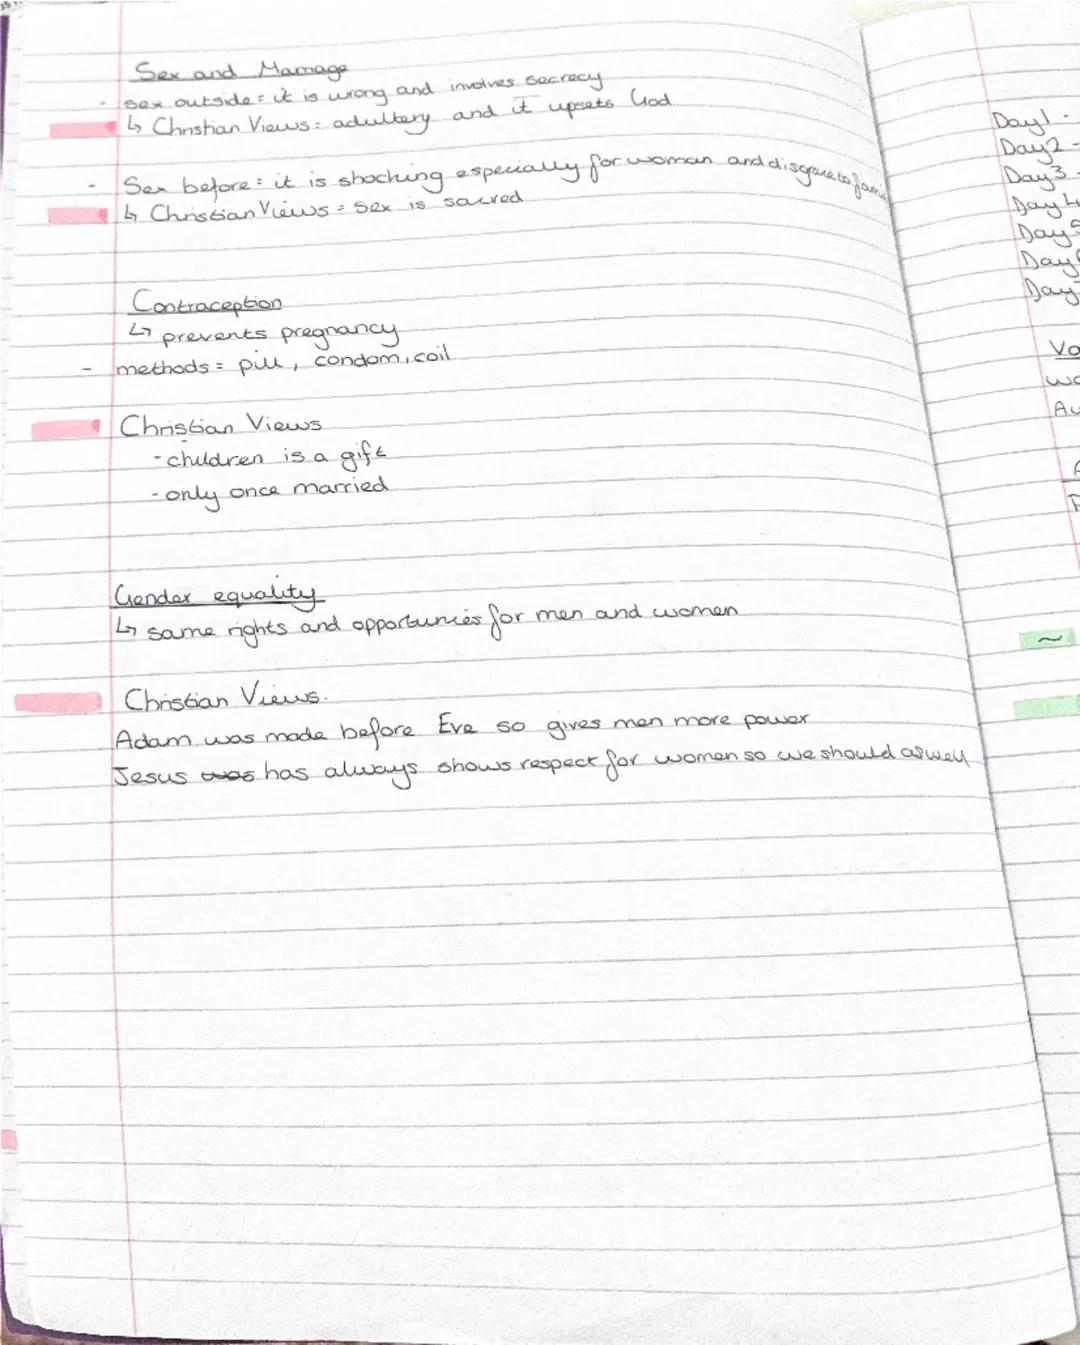 Sex and Marriage
- sex outside = it is wrong and involves secrecy
↳ Christian Views: adultery and it upsets God
- Sex before = it is shocking especially for woman and disgrace to family
↳ Christian Views = sex is sacred
Contraception
↳ prevents pregnancy
- methods = pill, condom, coil
Christian Views
- children is a gift
- only once married
Gender equality
↳ same rights and opportunies for men and women
Christian Views.
Adam was made before Eve so gives men more power
Jesus was has always shows respect for women so we should aswell
Day 1 -
Day 2 -
Day 3 -
Day 4
Day 5
Day 6
Day 7